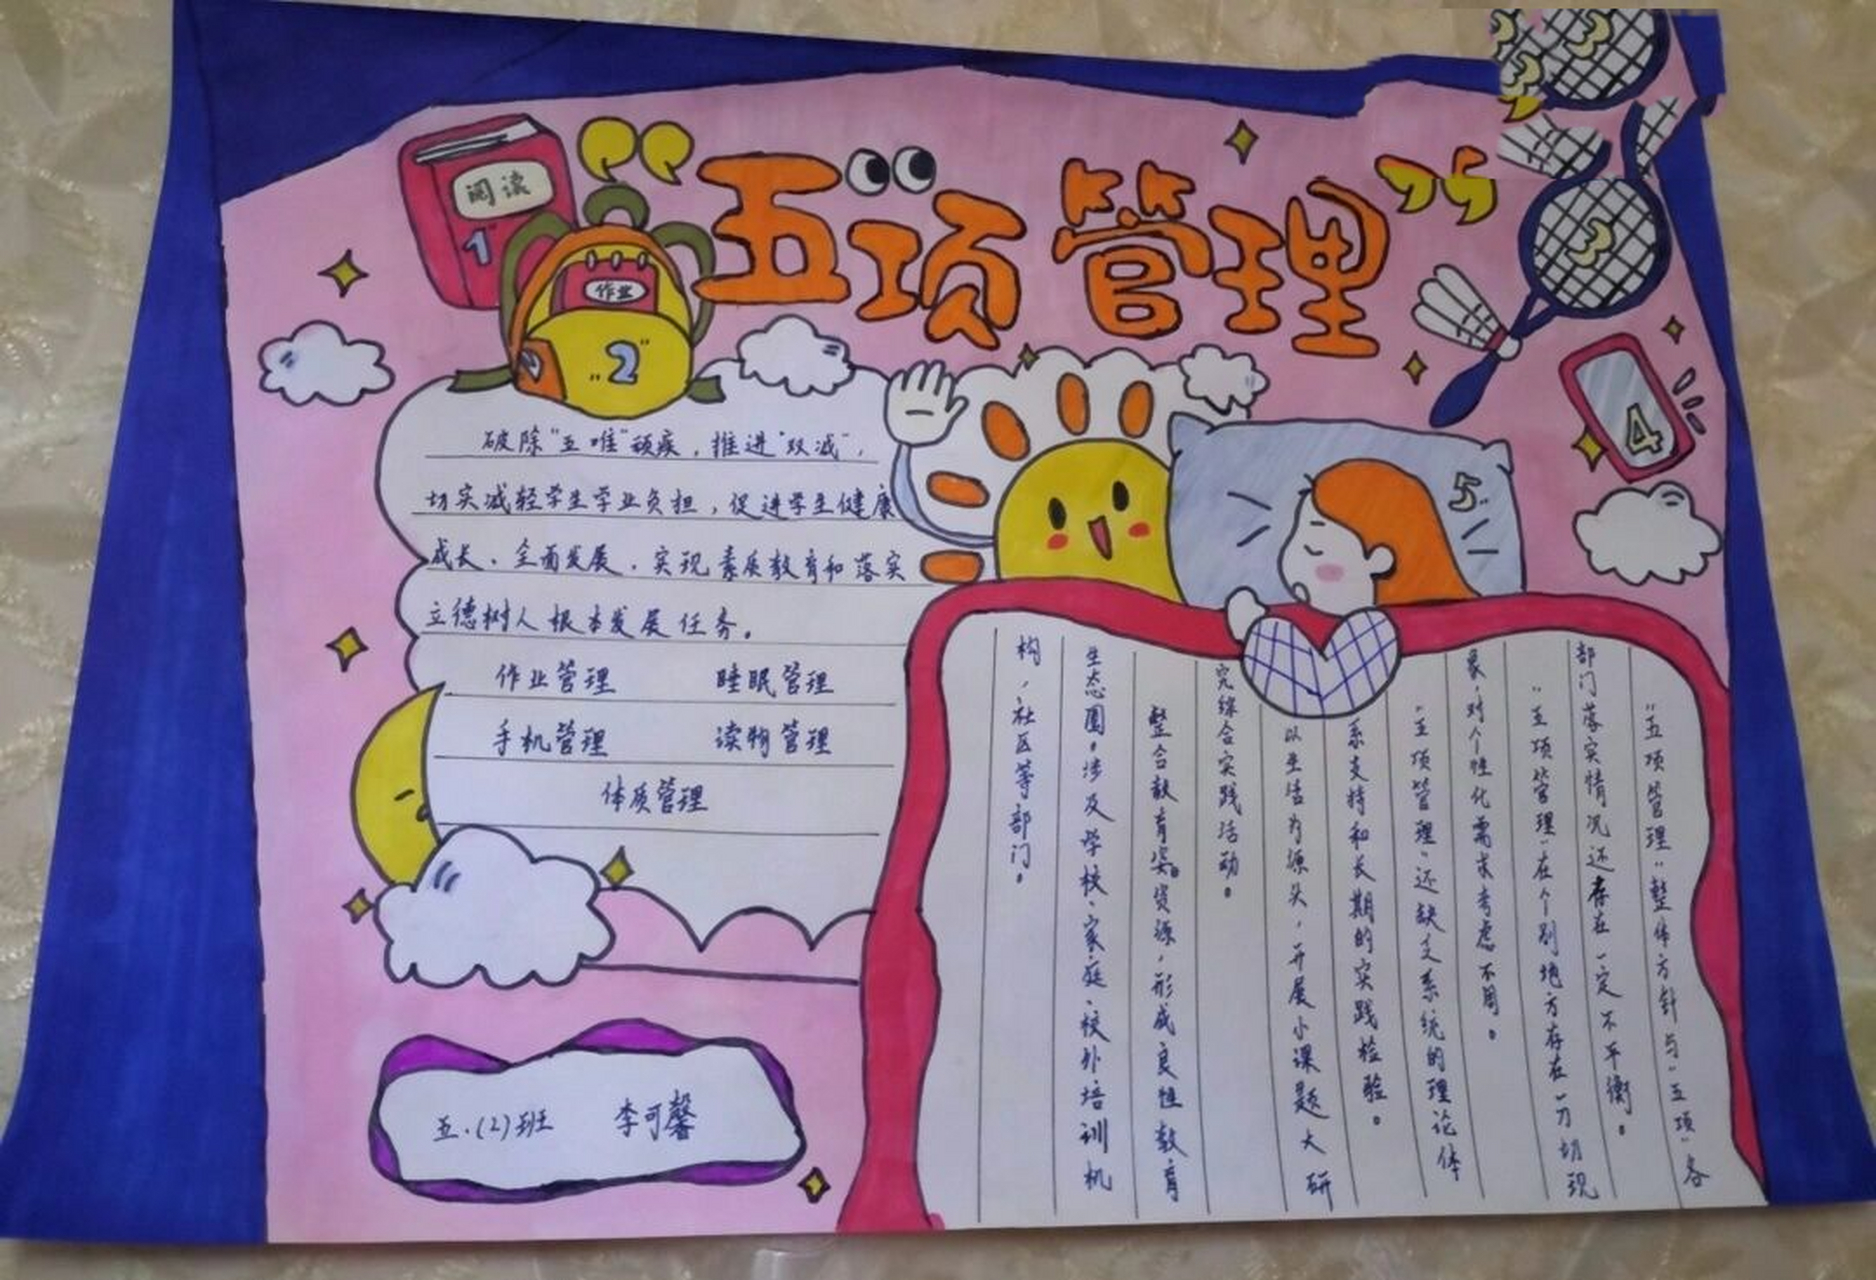 “五项管理”
阅读
1
作业
“2”
3
4
5
破除“五唯”顽疾，推进“双减”，
切实减轻学生学业负担，促进学生健康
成长、全面发展，实现素质教育和落实
立德树人根本发展任务。
作业管理 睡眠管理
手机管理 读物管理
体质管理
五.(2)班 李可馨
“五项管理”整体方针与“五项”各
部门落实情况还存在一定不平衡。
“五项管理”在个别地方存在一刀切现
象，对个性化需求考虑不周。
“五项管理”还缺乏系统的理论体
系支持和长期的实践检验。
以生活为源头，开展小课题大研
究综合实践活动。
整合教育实。资源，形成良性教育
生态圈。涉及学校、家庭、校外培训机
构，社区等部门。